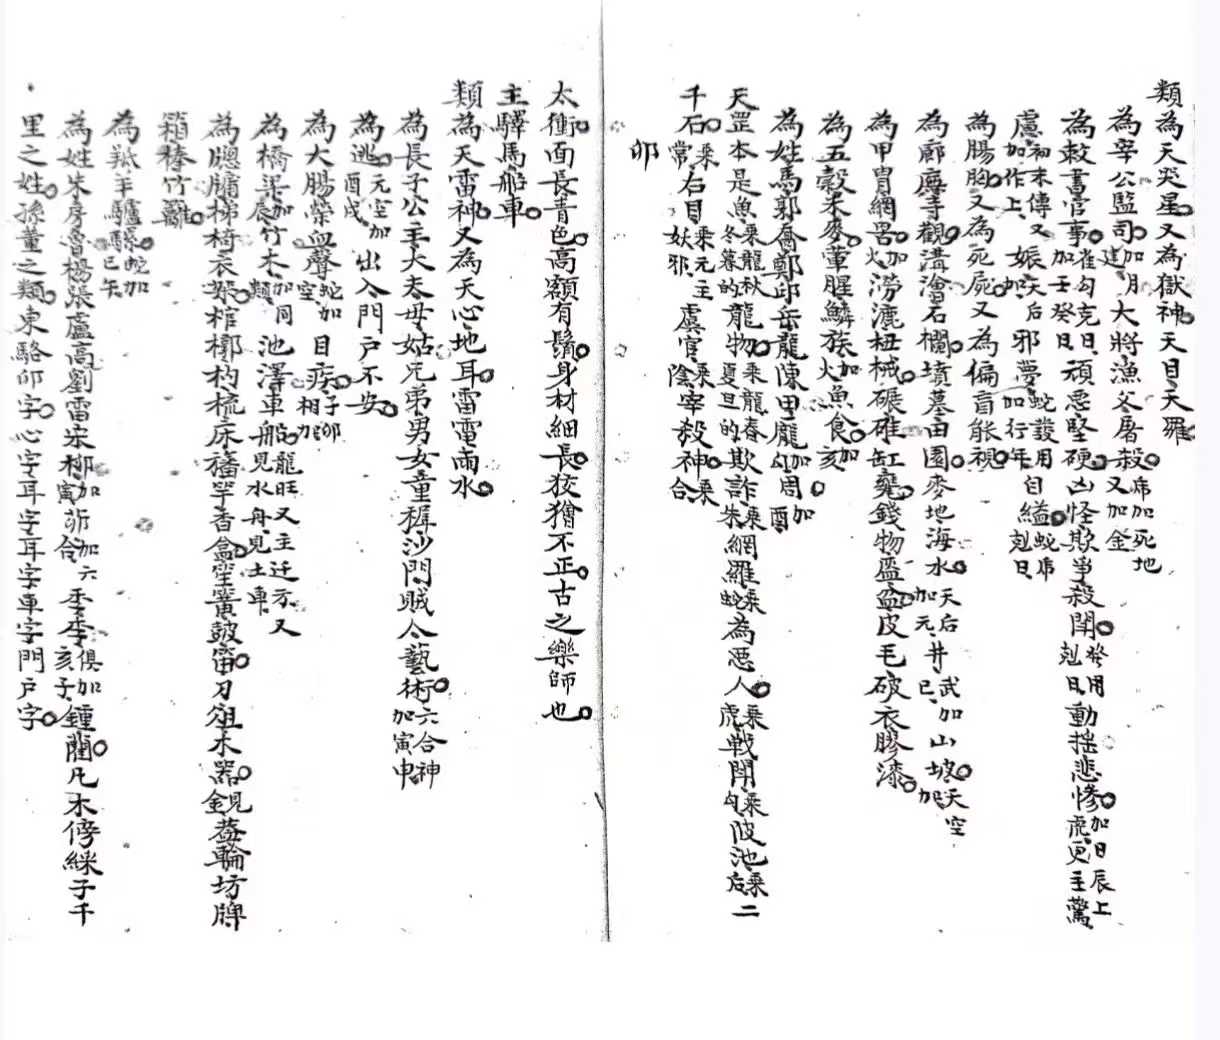 類為天災星又為獄神天目天羅
為宰公監司加月建大將漁父屠殺虎加死地又加金
為敕書官事雀勾克日加壬癸日頑惡堅硬凶怪欺爭殺鬪癸用剋日動搖悲慘加日辰上虎更主驚
慮初末傳又加作上娠天后加邪夢蛇發用加行年自縊蛇虎剋日
為腸胸又為死屍又為偏盲能視
為廊廡寺觀溝澮石欄墳墓田園麥地海水天后加元井武加巳山坡天空加
為甲冑網罟加火澇灑杻械碾碓缸甕錢物匜盆皮毛破衣膠漆
為五穀米麥葷腥鱗族加火魚食加亥
為姓馬郭喬鄭邱岳龍陳田龐勾加周加酉
天罡本是魚乘龍秋冬暮的龍物乘龍春夏旦的欺詐乘朱網羅乘蛇為惡人乘虎戰鬪乘勾陂池乘后二
千石乘常右目乘元主妖邪虞官乘陰宰殺神乘合
卯
太衝面長青色高額有鬚身材細長狡獪不正古之樂師也
主驛馬船車
類為天雷神又為天心地耳雷電雨水
為長子公主大夫母姑兄弟男女童稺沙門賊人藝術六合神加寅申
為逃元空加酉戌出入門戶不安
為大腸榮血聲蛇加空目疾子卯相加
為橋梁加辰竹木加同類池澤車船龍旺又主迁方又見水舟見土車
為牕牗梯椅衣架棺槨杓梳床旛竿香盒笙簧鼓笛刀俎木器鋧藞輪坊牌
箱椿竹籬
為羝羊驢騾蛇加巳午
為姓朱房魯楊張盧高劉雷宋柳加寅茆加六合季李俱加亥子鍾藺凡木傍綵子千
里之姓孫董之類東駱卯字心字耳字耳字車字門戶字